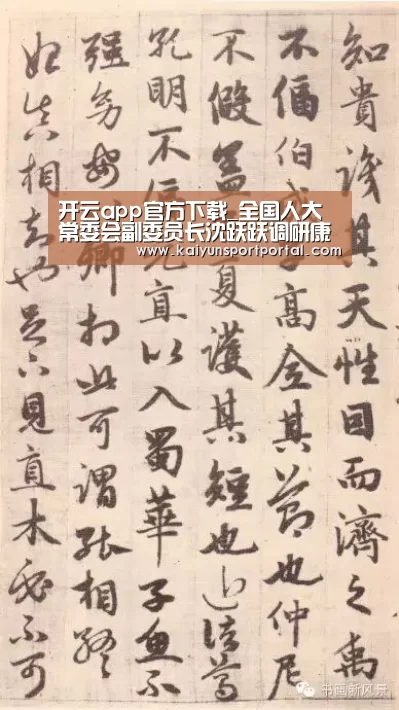 知貴識其天性因而濟之禹
不偪伯高全其節也仲尼
不假蓋夏護其短也近諸葛
孔明不直以入蜀華子魚不
強幼卿相此可謂能相終
始真相知也足下見直木必不可
开云app官方下载_全国人大
常委会副委员长沈跃跃调研康
www.kaiyunsportportal.com
书画新风景